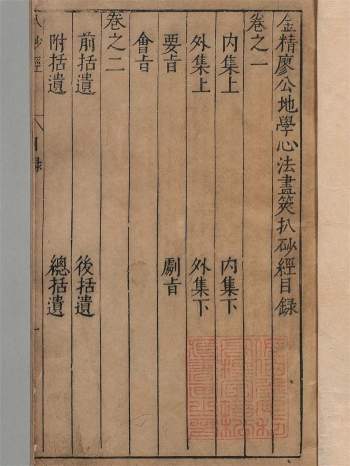 金精廖公地學心法畫筴扒砂經目錄
卷之一
內集上 內集下
外集上 外集下
要旨 劚旨
會旨
卷之二
前括遺 後括遺
附括遺 總括遺
扒砂經 目錄 一